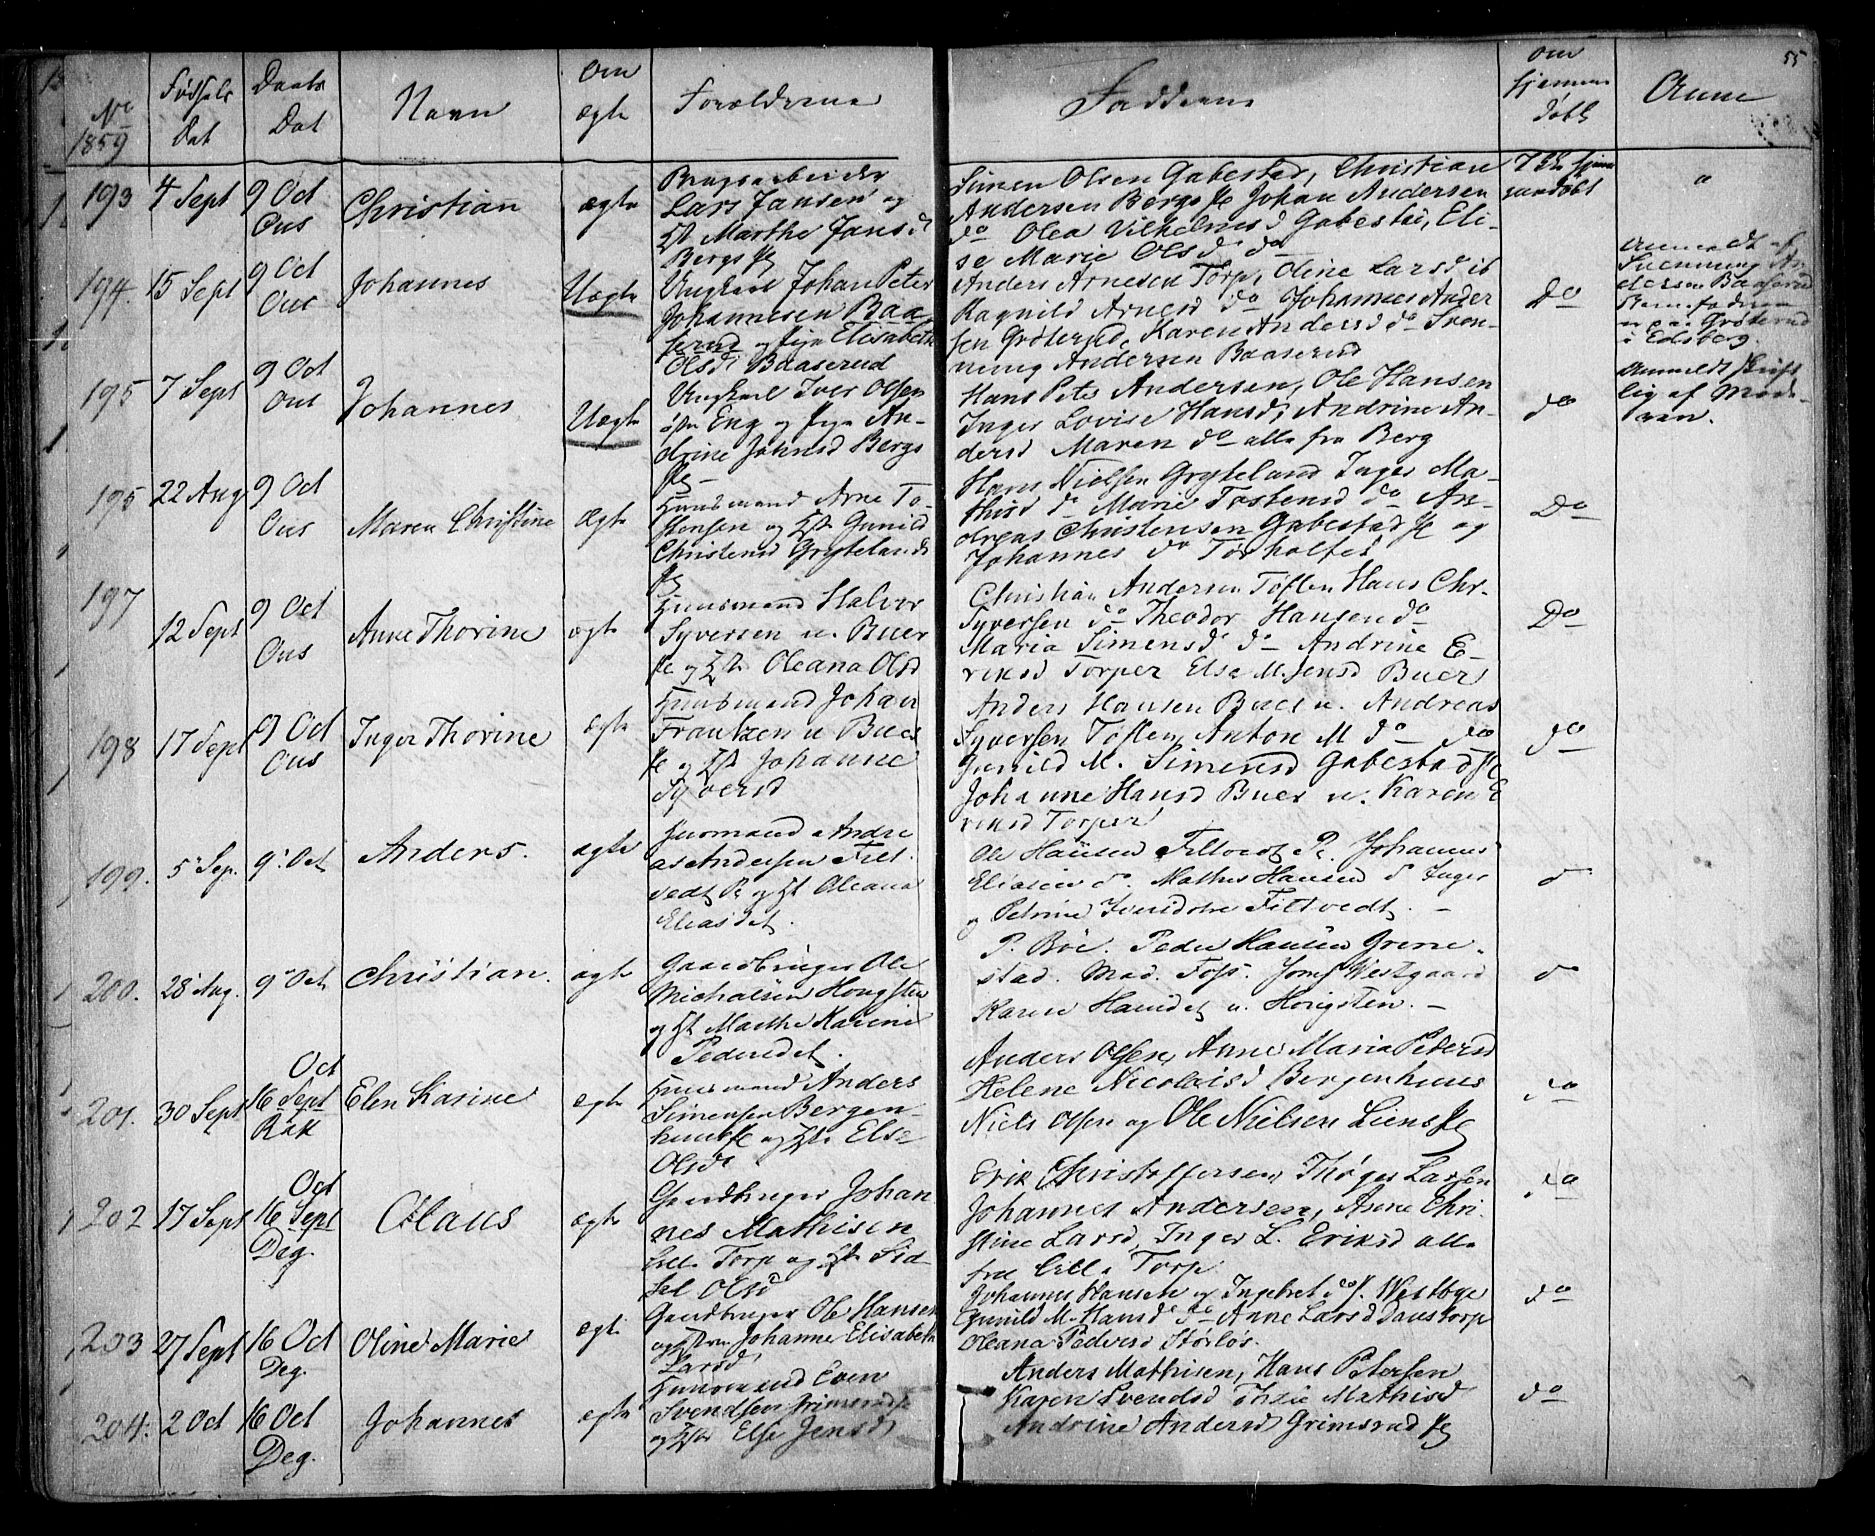 55
No
1859
Fødsels
dat
Daabs
Dat
Navn
Om
ægte
Forældrene
Faddere
om
hjemme
døbt
Anm
193
4 Sept
9 Oct
Ous
Christian
ægte
Brugsarbeider
Lars Jansen og
Marthe Jansd
Bergs
Simen Olsen Gabestad, Christian
Andersen Bergs Johan Andersen
do Olea Vilhelmesd Gabestie, Eli-
se Marie Olsd do
194.
15 Sept
9 Oct
Ous
Johannes
Uægte
Ungkarl Johan Peter
Johannesen Baa-
serud og Pige Elisabeth
Olsd Baaserud
Anders Arnesen Torp, Oline Larsd
Ragnild Arnesd do Johannes Ander
sen Grøterud, Karen Andersd do Sven-
nung Andersen Baaserud
Do
Anmeldt af
Svennung An
dersen Baaserud
Barnefaderen
Grøterud
i Edsberg.
195
7 Sept
9 Oct
Ous
Johannes
Uægte
Ungkarl Iver Olsen
Eng og Pige An-
drine Johnsd Bergs
Hans Peter Andersen, Ole Hansen
Inger Lovise Hansd, Andrine An-
dersd Maren do alle fra Berg
do
Anmeldt skrift
lig af Mod-
eren.
195
22 Aug
9 Oct
Ous
Maren Christine
Ægte
Huusmand Arne To-
stensen og Gunild
Christensd Grytelands
Hans Nielsen Gryteland Inger Ma-
thisd do Marie Tostensd do An-
dreas Christensen Gabestad og
Johannes do Torholtet
Do
197
12 Sept
9 Oct
Ous
Anne Thorine
ægte
Huusmand Halvor
Syversen u. Buer
og Oleana Olsd
Christian Andersen Toften Hans Chr.
Syversen do Theodor Hansen do
Maria Simensd do Andrine E-
riksd Torper Else M. Jensd Buer
Do
198
17 Sept
9 Oct
Ous
Inger Thorine
ægte
Huusmand Johan
Frantzen u Buer
og Johanne
Syversd
Anders Hansen Buer u. Andreas
Syversen Toften Anton M do do
Gunild M. Simensd Gabestad
Johanne Hansd Buer u. Karen E
riksd Torper
do
199.
5 Sep.
9. Oct
Anders.
ægte
Huusmand Andre
as Andersen Filt-
vedt og Oleana
Eliasdet.
Ole Hansen Filtvedt Johannes
Eliasen do. Mathis Hansen d Inger
og Petrine Filtvedt.
200.
28 Aug.
9 Oct
Christian.
ægte
Gaardbruger Ole
Michalsen Hougsten
og Marthe Karine
Pedersdet.
P. Böe. Peder Hansen Grime-
stad. Mad. Foss. Jomf Westgaard
Karen Hansdet u. Hougsten.
201.
30 Sept
Oct
16 Sept
Råk
Elen Karine
ægte
Huusmand Anders
Simensen Bergen-
huus og Else
Olsd
Anders Olsen, Anne Maria Petersd
Helene Nicolaisd Bergenhuus
Niels Olsen og Ole Nielsen Liens
do
202
17 Sept
Oct
16 Sept
Deg.
Olaus
ægte
Gaardbruger Johan
nes Mathisen
Lill Torp og Sid-
sel Olsd
Erik Christoffersen, Thøger Larsen
Johannes Andersen, Anne Chri-
stine Larsd, Inger L. Eriksd alle
fra Lille Torp.
do
203
27 Sept
16 Oct
Deg.
Oline Marie
ægte
Gaardbruger Ole Hansen
og Johanne Elisabeth
Larsd
Johannes Hansen og Ingebret do Westbye
Gunild M. Hansd do Anne Larsd Daustorp
Oleana Pedersd Storløs.
do
204.
2 Oct
16 Oct
Deg.
Johannes
ægte
Huusmand Even
Svendsen Grimsrud
og Else Jensd
Anders Mathisen, Hans Petersen
Karen Svendsd Mathisd
Andrine Andersd Grimsrud
do